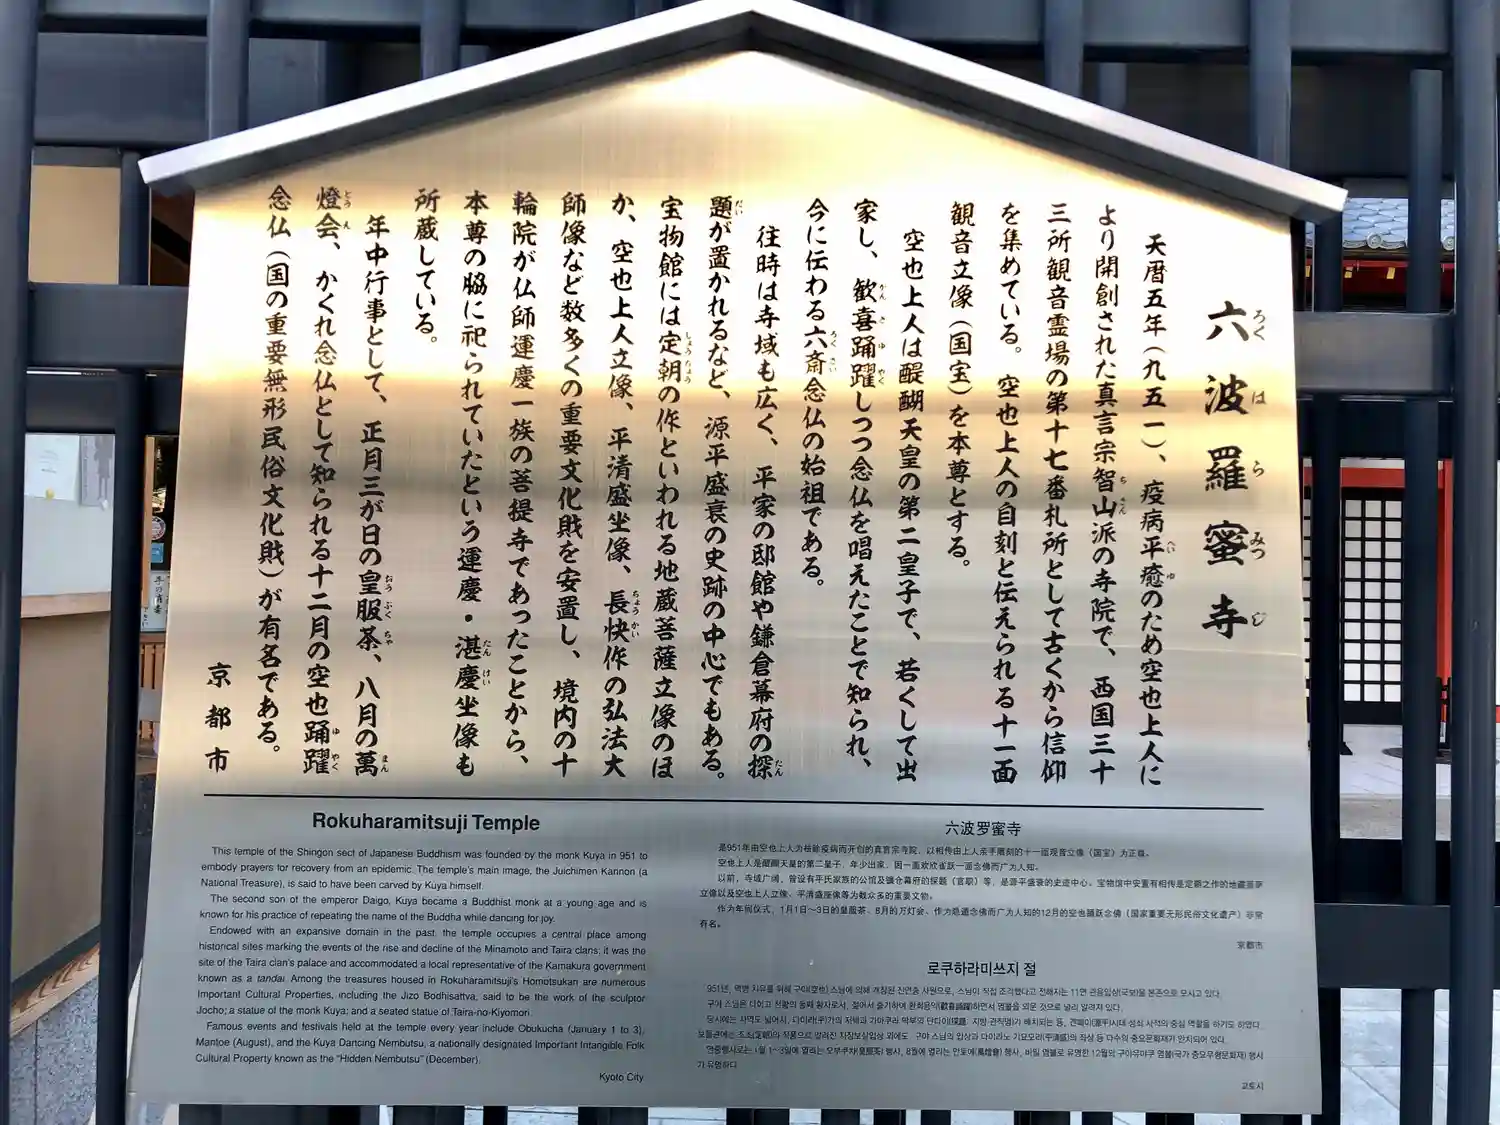 六波羅蜜寺
ろく は ら みつ じ
天暦五年（九五一）、疫病平癒のため空也上人に
より開創された真言宗智山派の寺院で、西国三十
三所観音霊場の第十七番札所として古くから信仰
を集めている。空也上人の自刻と伝えられる十一面
観音立像（国宝）を本尊とする。
空也上人は醍醐天皇の第二皇子で、若くして出
家し、歓喜踊躍しつつ念仏を唱えたことで知られ、
今に伝わる六斎念仏の始祖である。
往時は寺域も広く、平家の邸館や鎌倉幕府の探
題が置かれるなど、源平盛衰の史跡の中心でもある。
宝物館には定朝の作といわれる地蔵菩薩立像のほ
か、空也上人立像、平清盛坐像、長快作の弘法大
師像など数多くの重要文化財を安置し、境内の十
輪院が仏師運慶一族の菩提寺であったことから、
本尊の脇に祀られていたという運慶・湛慶坐像も
所蔵している。
年中行事として、正月三が日の皇服茶、八月の萬
燈会、かくれ念仏として知られる十二月の空也踊躍
念仏（国の重要無形民俗文化財）が有名である。
京都市
Rokuharamitsuji Temple
This temple of the Shingon sect of Japanese Buddhism was founded by the monk Kuya in 951 to
embody prayers for recovery from an epidemic. The temple's main image, the Juichimen Kannon (a
National Treasure), is said to have been carved by Kuya himself.
The second son of the emperor Daigo, Kuya became a Buddhist monk at a young age and is
known for his practice of repeating the name of the Buddha while dancing for joy.
Endowed with an expansive domain in the past, the temple occupies a central place among
historical sites marking the events of the rise and decline of the Minamoto and Taira clans; it was the
site of the Taira clan's palace and accommodated a local representative of the Kamakura government
known as a tandai. Among the treasures housed in Rokuharamitsuji's Homotsukan are numerous
Important Cultural Properties, including the Jizo Bodhisattva, said to be the work of the sculptor
Jocho; a statue of the monk Kuya; and a seated statue of Taira-no-Kiyomori.
Famous events and festivals held at the temple every year include Obukucha (January 1 to 3),
Mantoe (August), and the Kuya Dancing Nembutsu, a nationally designated Important Intangible Folk
Cultural Property known as the "Hidden Nembutsu" (December).
Kyoto City
六波罗蜜寺
是951年由空也上人为祛除疫病而开创的真言宗寺院，以相传由上人亲手雕刻的十一面观音立像（国宝）为正尊。
空也上人是醍醐天皇的第二皇子，年少出家，因一面欢欣雀跃一面念佛而广为人知。
以前，寺域广阔，曾设有平氏家族的公馆及镰仓幕府的探题（官职）等，是源平盛衰的史迹中心。宝物馆中安置有相传是定朝之作的地藏菩萨
立像以及空也上人立像、平清盛座像等为数众多的重要文物。
作为年间仪式，1月1日～3日的皇服茶、8月的万灯会、作为隐遁念佛而广为人知的12月的空也踊跃念佛（国家重要无形民俗文化遗产）非常
有名。
京都市
로쿠하라미쓰지 절
951년, 역병 치유를 위해 구야(空也) 스님에 의해 개창된 진언종 사원으로, 스님이 직접 조각했다고 전해지는 11면 관음입상(국보)을 본존으로 모시고 있다.
구야 스님은 다이고 천황의 둘째 황자로서, 젊어서 출가하여 환희용약(歡喜踊躍)하면서 염불을 외운 것으로 널리 알려져 있다.
교토시